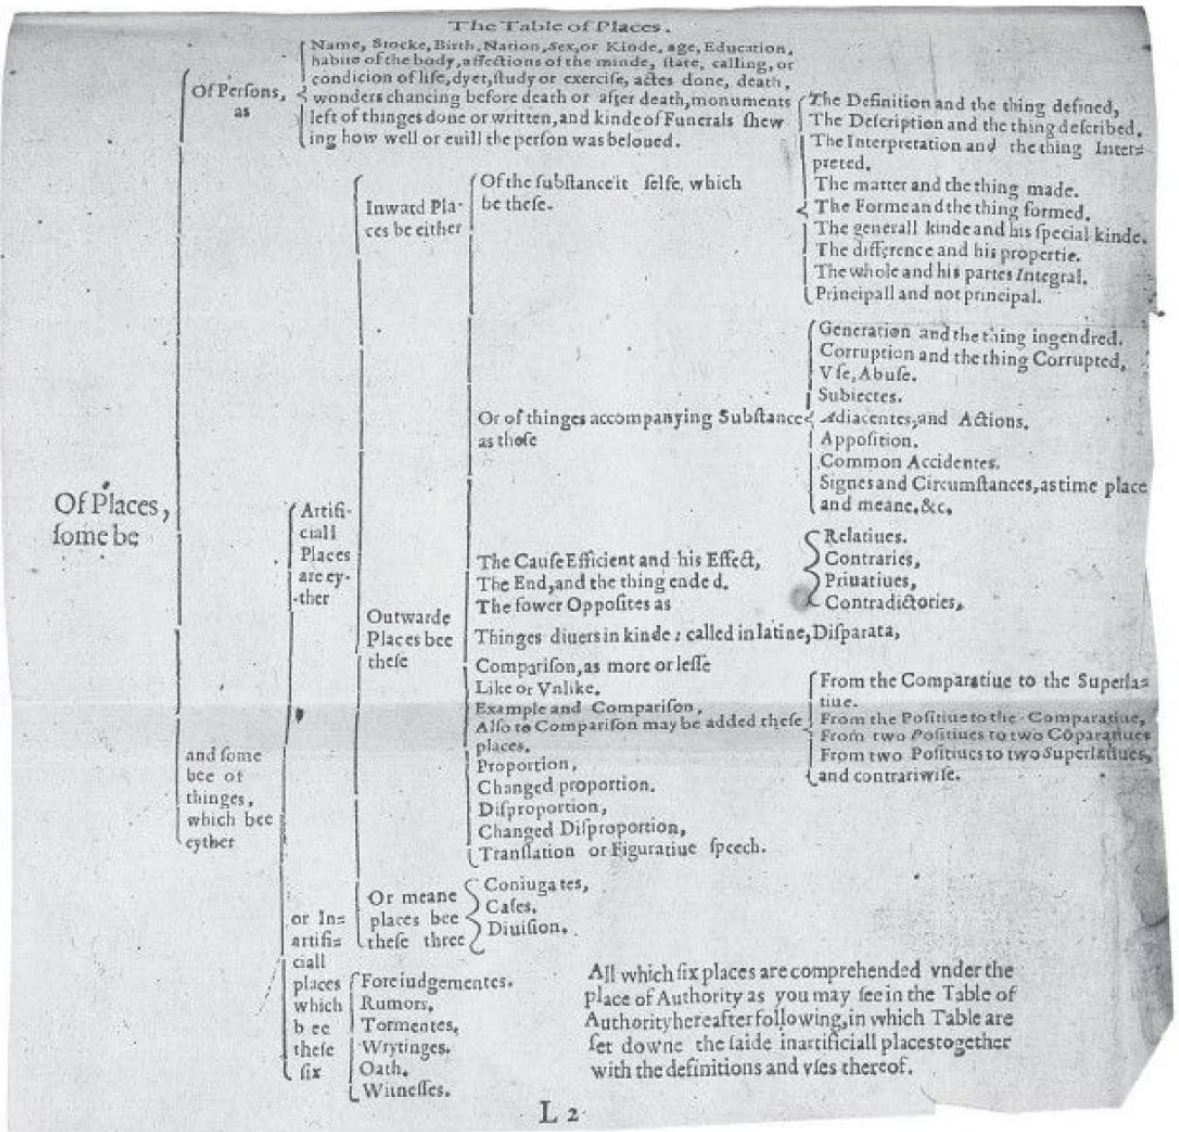 The Table of Places.
Of Places,
ſome be
Of Perſons,
as
Name, Stocke, Birth, Nation, Sex, or Kinde, age, Education,
habite of the body, affections of the minde, ſtate, calling, or
condicion of life, dyet, ſtudy or exerciſe, actes done, death,
wonders chancing before death or after death, monuments
left of thinges done or written, and kinde of Funerals ſhew
ing how well or euill the perſon was beloued.
and ſome
bee of
thinges,
which bee
eyther
Artifi-
ciall
Places
are ey-
ther
Inward Pla-
ces be either
Of the ſubſtance it ſelfe, which
be theſe.
The Definition and the thing defined,
The Deſcription and the thing deſcribed,
The Interpretation and the thing Inter=
preted.
The matter and the thing made.
The Forme and the thing formed.
The generall kinde and his ſpecial kinde.
The difference and his propertie.
The whole and his partes Integral.
Principall and not principal.
Or of thinges accompanying Subſtance
as thoſe
Generation and the thing ingendred.
Corruption and the thing Corrupted,
Vſe, Abuſe.
Subiectes.
Adiacentes, and Actions.
Appoſition.
Common Accidentes.
Signes and Circumſtances, as time place
and meane, &c.
Outwarde
Places bee
theſe
The Cauſe Efficient and his Effect,
The End, and the thing ended.
The fower Oppoſites as
Relatiues.
Contraries,
Priuatiues,
Contradictories,
Thinges diuers in kinde : called in latine, Diſparata,
Compariſon, as more or leſſe
Like or Vnlike.
Example and Compariſon,
Alſo to Compariſon may be added theſe
places.
From the Comparatiue to the Superla=
tiue.
From the Poſitiue to the Comparatiue,
From two Poſitiues to two Cōparatiues
From two Poſitiues to two Superlatiues,
and contrariwiſe.
Proportion,
Changed proportion.
Diſproportion,
Changed Diſproportion,
Tranſlation or Figuratiue ſpeech.
Or meane
places bee
theſe three
Coniugates,
Caſes.
Diuiſion.
or In=
artifi=
ciall
places
which
bee
theſe
ſix
Foreiudgementes.
Rumors,
Tormentes,
Wrytinges.
Oath.
Witneſſes.
All which ſix places are comprehended vnder the
place of Authority as you may ſee in the Table of
Authority hereafter following, in which Table are
ſet downe the ſaide inartificiall places together
with the definitions and vſes thereof.
L 2